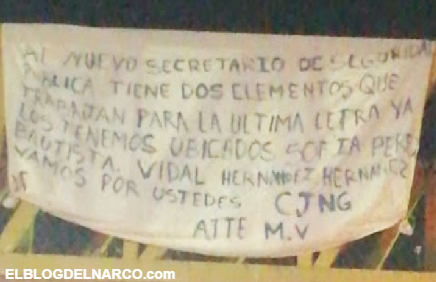 AL NUEVO SECRETARIO DE SEGURIDAD
PUBLICA TIENE DOS ELEMENTOS QUE
TRABAJAN PARA LA ULTIMA LETRA YA
LOS TENEMOS UBICADOS SOFIA PERE
BAUTISTA. VIDAL HERNANDEZ HERNANDEZ
VAMOS POR USTEDES CJNG
ATTE M.V
ELBLOGDELNARCO.com